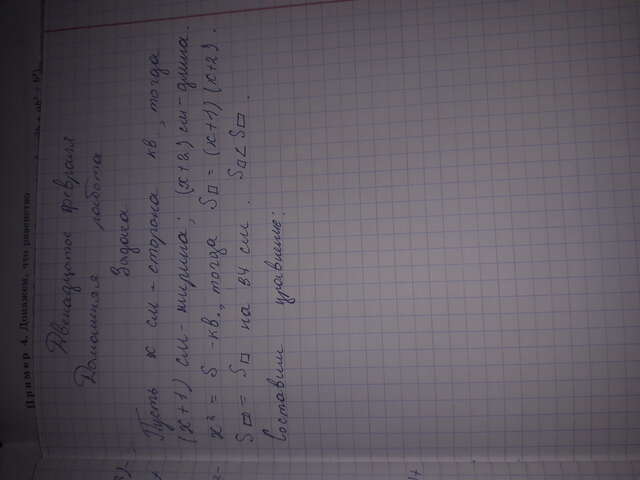 Пример 4. Докажем, что равенство
Двенадцатое февраля
Домашняя работа
Задача
Пусть x см - сторона кв., тогда
(x+1) см - ширина; (x+2) см - длина.
x² = S - кв., тогда S▭ = (x+1)(x+2).
S▭ = S□ на 34 см. S□ < S▭.
Составим уравнение: